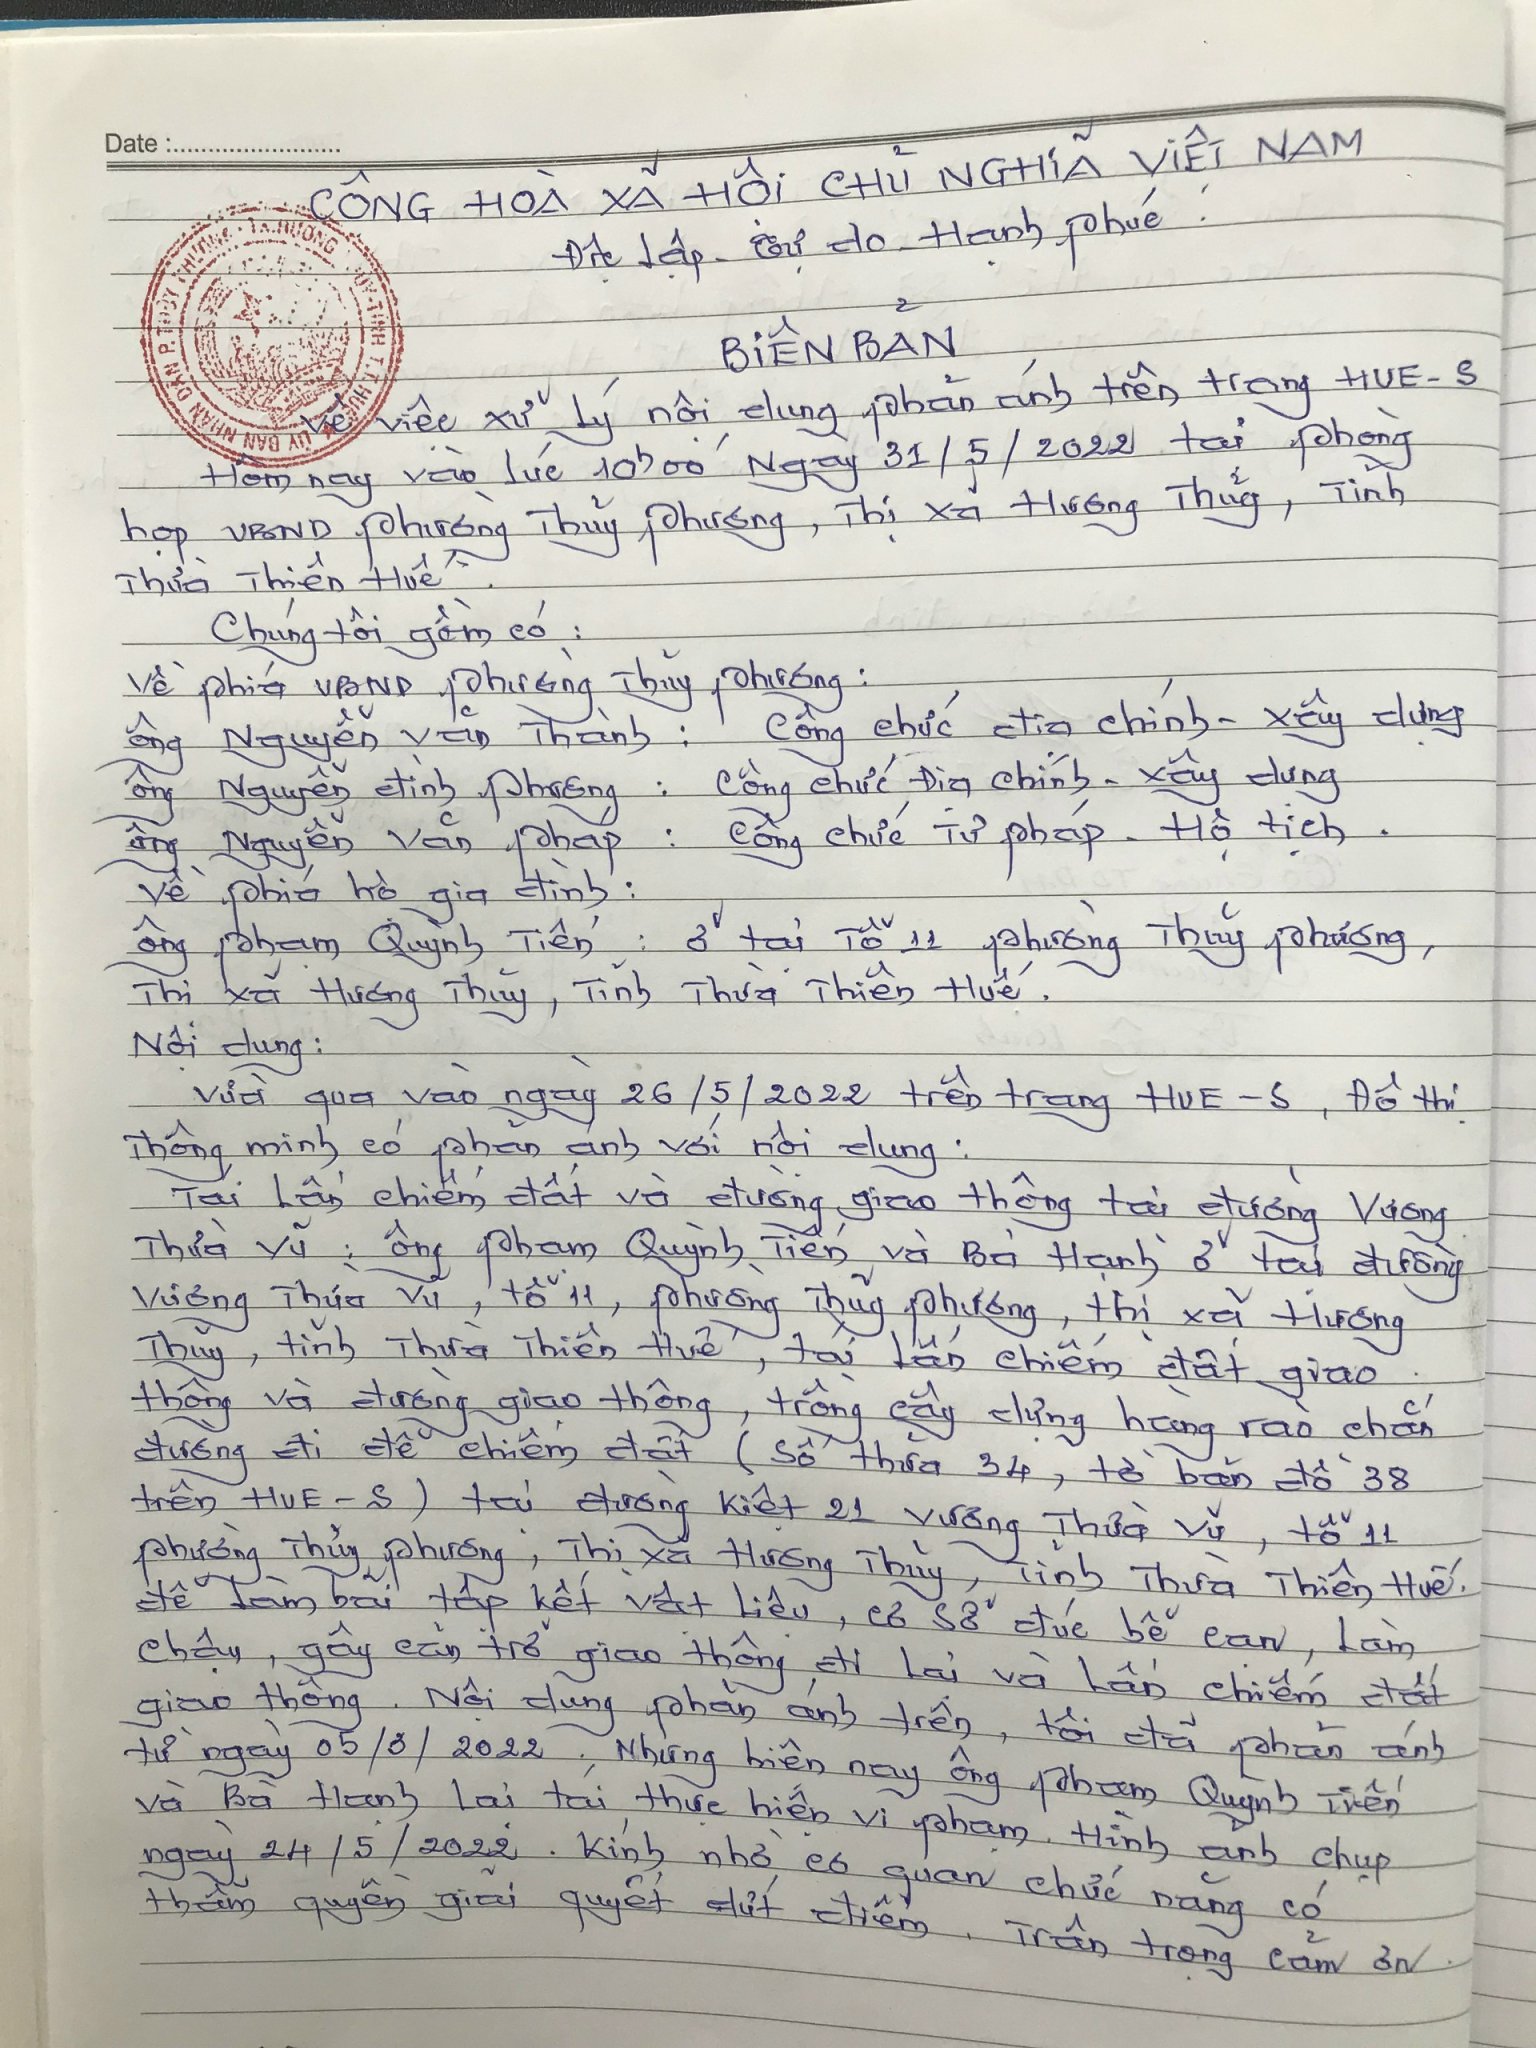 Date :........................
CÔNG HOÀ XÃ HỘI CHỦ NGHĨA VIỆT NAM
Độc lập - Tự do - Hạnh phúc.
BIÊN BẢN
Về việc xử lý nội dung phản ánh trên trang HUE-S
Hôm nay vào lúc 10h00' Ngày 31/5/2022 tại phòng
họp UBND phường Thủy phương, Thị xã Hương Thủy, Tỉnh
Thừa Thiên Huế.
Chúng tôi gồm có:
Về phía UBND phường Thủy phương:
ông Nguyễn Văn Thành: Công chức địa chính - xây dựng
ông Nguyễn đình phương: Công chức Địa chính - xây dựng
ông Nguyễn Văn pháp: Công chức Tư pháp - Hộ tịch.
Về phía hộ gia đình:
ông phạm Quỳnh Tiến: ở tại Tổ 11 phường Thủy phương,
Thị xã Hương Thủy, Tỉnh Thừa Thiên Huế.
Nội dung:
Vừa qua vào ngày 26/5/2022 trên trang HUE-S, Đô thị
Thông minh có phản ánh với nội dung:
Tái lấn chiếm đất và đường giao thông tại đường Vương
Thừa Vũ: ông phạm Quỳnh Tiến và Bà Hạnh ở tại đường
Vương Thừa Vũ, tổ 11, phường Thủy phương, thị xã Hương
Thủy, tỉnh Thừa Thiên Huế, tái lấn chiếm đất giao
thông và đường giao thông, trồng cây dựng hàng rào chắn
đường đi để chiếm đất (Số thửa 34, tờ bản đồ 38
trên HUE-S) tại đường Kiệt 21 Vương Thừa Vũ, tổ 11
phường Thủy phương, Thị xã Hương Thủy, Tỉnh Thừa Thiên Huế.
để làm bãi tập kết vật liệu, cơ sở đúc bể cạn, làm
chậu, gây cản trở giao thông đi lại và lấn chiếm đất
giao thông. Nội dung phản ánh trên, tôi đã phản ánh
từ ngày 05/3/2022. Nhưng hiện nay ông phạm Quỳnh Tiến
và Bà Hạnh lại tái thực hiện vi phạm. Hình ảnh chụp
ngày 24/5/2022. Kính nhờ cơ quan chức năng có
thẩm quyền giải quyết dứt điểm. Trân trọng cảm ơn.